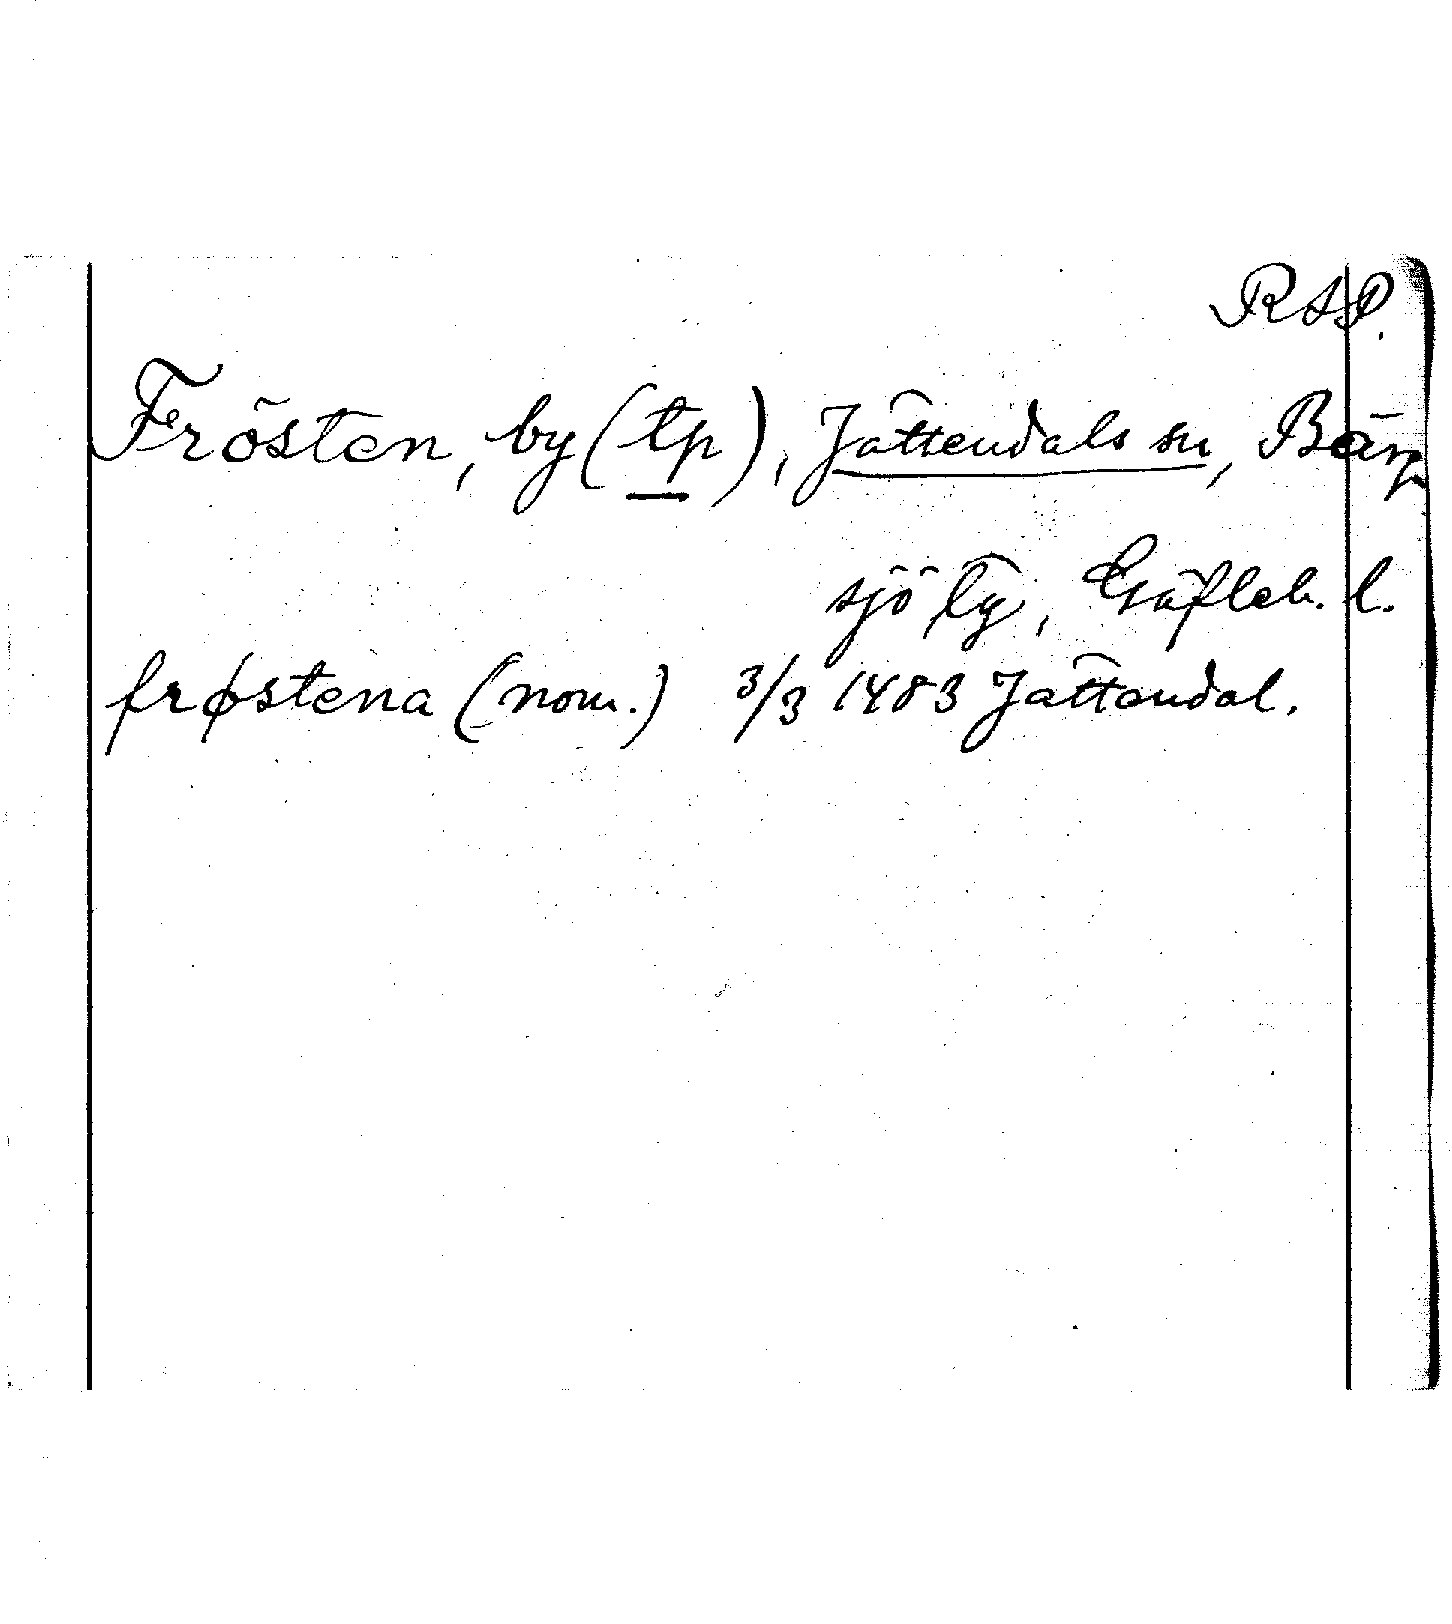 RAP.
Frösten, by (tp), Jättendals sn, Berg-
sjö tg, Gäfleb. l.
frøstena (nom.) 3/3 1483 Jattendal.